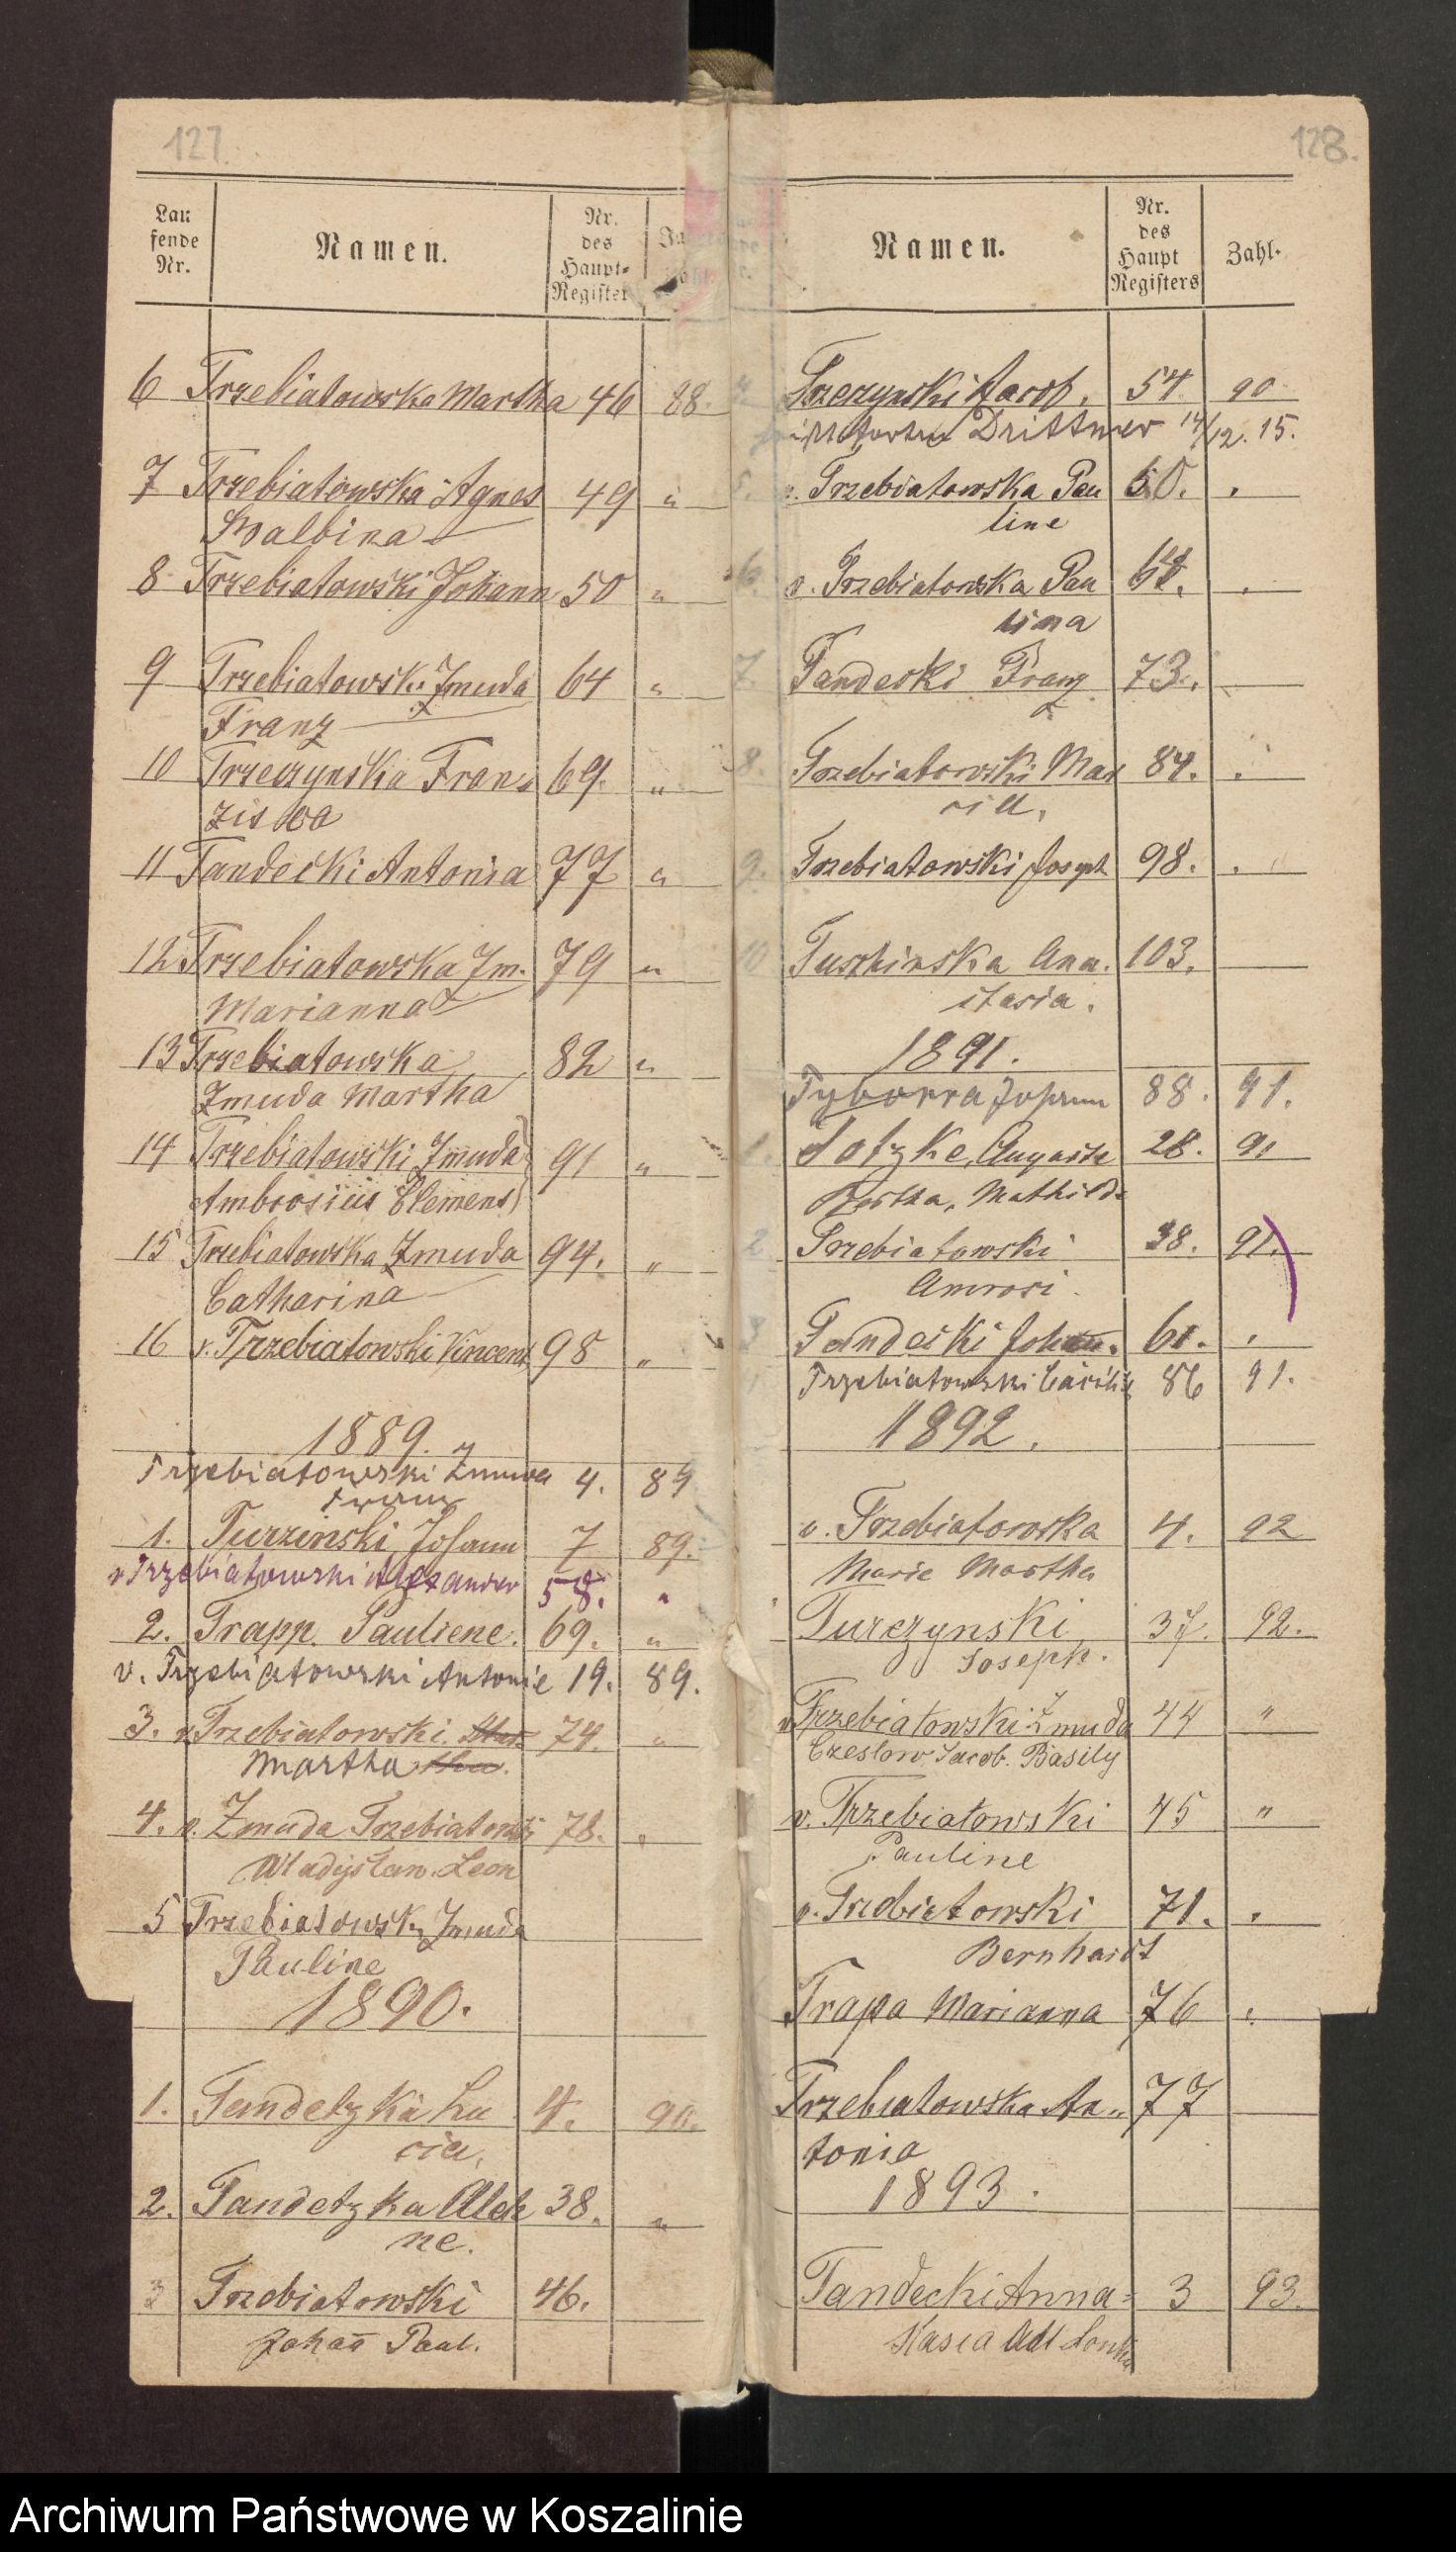 127.
Lau
fende
Nr.
Namen.
Nr.
des
Haupt-
Register
6 Trzebiatowska Martha 46 88.
7 Trzebiatowska Agnes 49 "
Balbina
8 Trzebiatowski Johann 50 "
9 Trzebiatowski Zmuda 64 "
Franz
10 Trzeczynska Fran- 69. "
ziska
11 Tandecki Antonia 77 "
12 Trzebiatowska Zm. 79 "
Marianna
13 Trzebiatowska 82 "
Zmuda Martha
14 Trzebiatowski Zmuda 91 "
Ambrosius Clemens
15 Trzebiatowska Zmuda 94. "
Catharina
16 v. Trzebiatowski Vincent 98 "
1889.
Trzebiatowski Zmuda 4. 89
Franz
1. Turzinski Johann 7 89.
v Trzebiatowski Alexander 58. "
2. Trapp. Pauliene. 69. "
v. Trzebiatowski Antonie 19. 89.
3. v Trzebiatowski. 74. "
Martha
4. v. Zmuda Trzebiatowski 78. "
Wladyslaw. Leon
5 Trzebiatowski Zmuda
Pauline
1890.
1. Tandetzka Lu 4. 90.
cia.
2. Tandetzka Hele 38. "
ne.
3 Trzebiatowski 46.
Johan̄ Paul.
128.
Namen.
Nr.
des
Haupt
Registers
Zahl.
Trzezynski Jacob. 54. 90
Drittmer 14/12. 15.
5. v. Trzebiatowska Pau 60. .
line
6. v. Trzebiatowska Pau 64. .
lina
7. Tandecki Franz 73.
8. Trzebiatowski Mar 84. .
9. Trzebiatowski Joseph 98. .
10 Tuschinska Ana. 103.
stasia.
1891.
Tyborra Johann 88. 91.
1. Totzke, Auguste 28. 91
Bertha, Mathilde
2 Trzebiatowski 38. 91.
Amrosi.
3 Tandecki Johan. 61. .
Trzebiatowski Cäcilie 86 91.
1892.
v. Trzebiatowska 4. 92
Marie Martha
Turczynski 37. 92.
Joseph.
v Trzebiatowski Zmuda 44 "
Czeslow. Jacob. Basily
v. Trzebiatowski 45 "
Pauline
v. Trzebiatowski 71. .
Bernhardt
Trapa Marianna 76 .
Trzebiatowska An- 77
tonia
1893.
Tandecki Anna- 3 93.
Archiwum Państwowe w Koszalinie